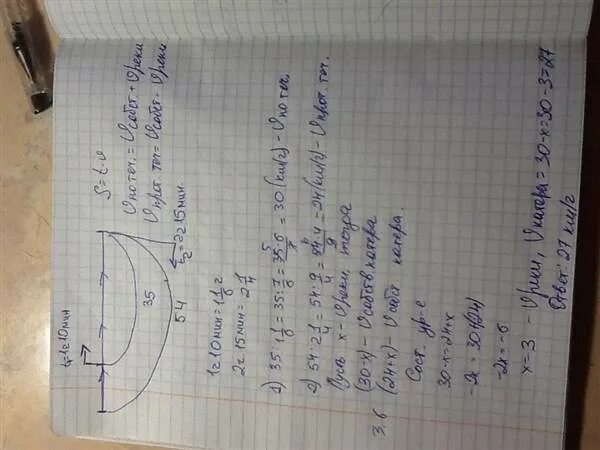 t₁=1ч10мин
35
54
t₂=2ч15мин
S=t·v
Vпо теч.=Vсобст.+Vреки
Vпрот теч=Vсобст-Vреки
1ч10мин=1 1/6 ч
2ч15мин=2 1/4
1) 35:1 1/6=35:7/6=35·6/7=30(км/ч)-Vпо теч.
2) 54:2 1/4=54:9/4=54·4/9=24(км/ч)-Vпрот. теч.
Пусть x-Vреки, тогда
(30-x)-Vсобств катера
(24+x)-Vсобст катера.
Сост. ур-е
30-x=24+x
-2x=-6
x=3 - Vреки, Vкатера=30-x=30-3=27
Ответ: 27 км/ч